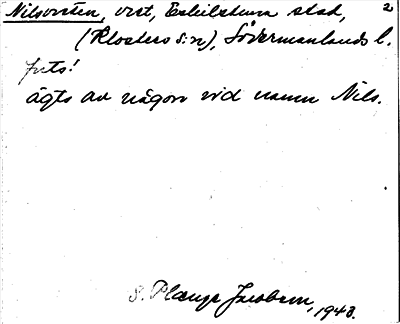 Nilsvreten, vret, Eskilstuna stad, 2
(Klosters s:n), Södermanlands l.
Juts!
ägts av någon vid namn Nils.
S. Plænge Jacobson, 1943.